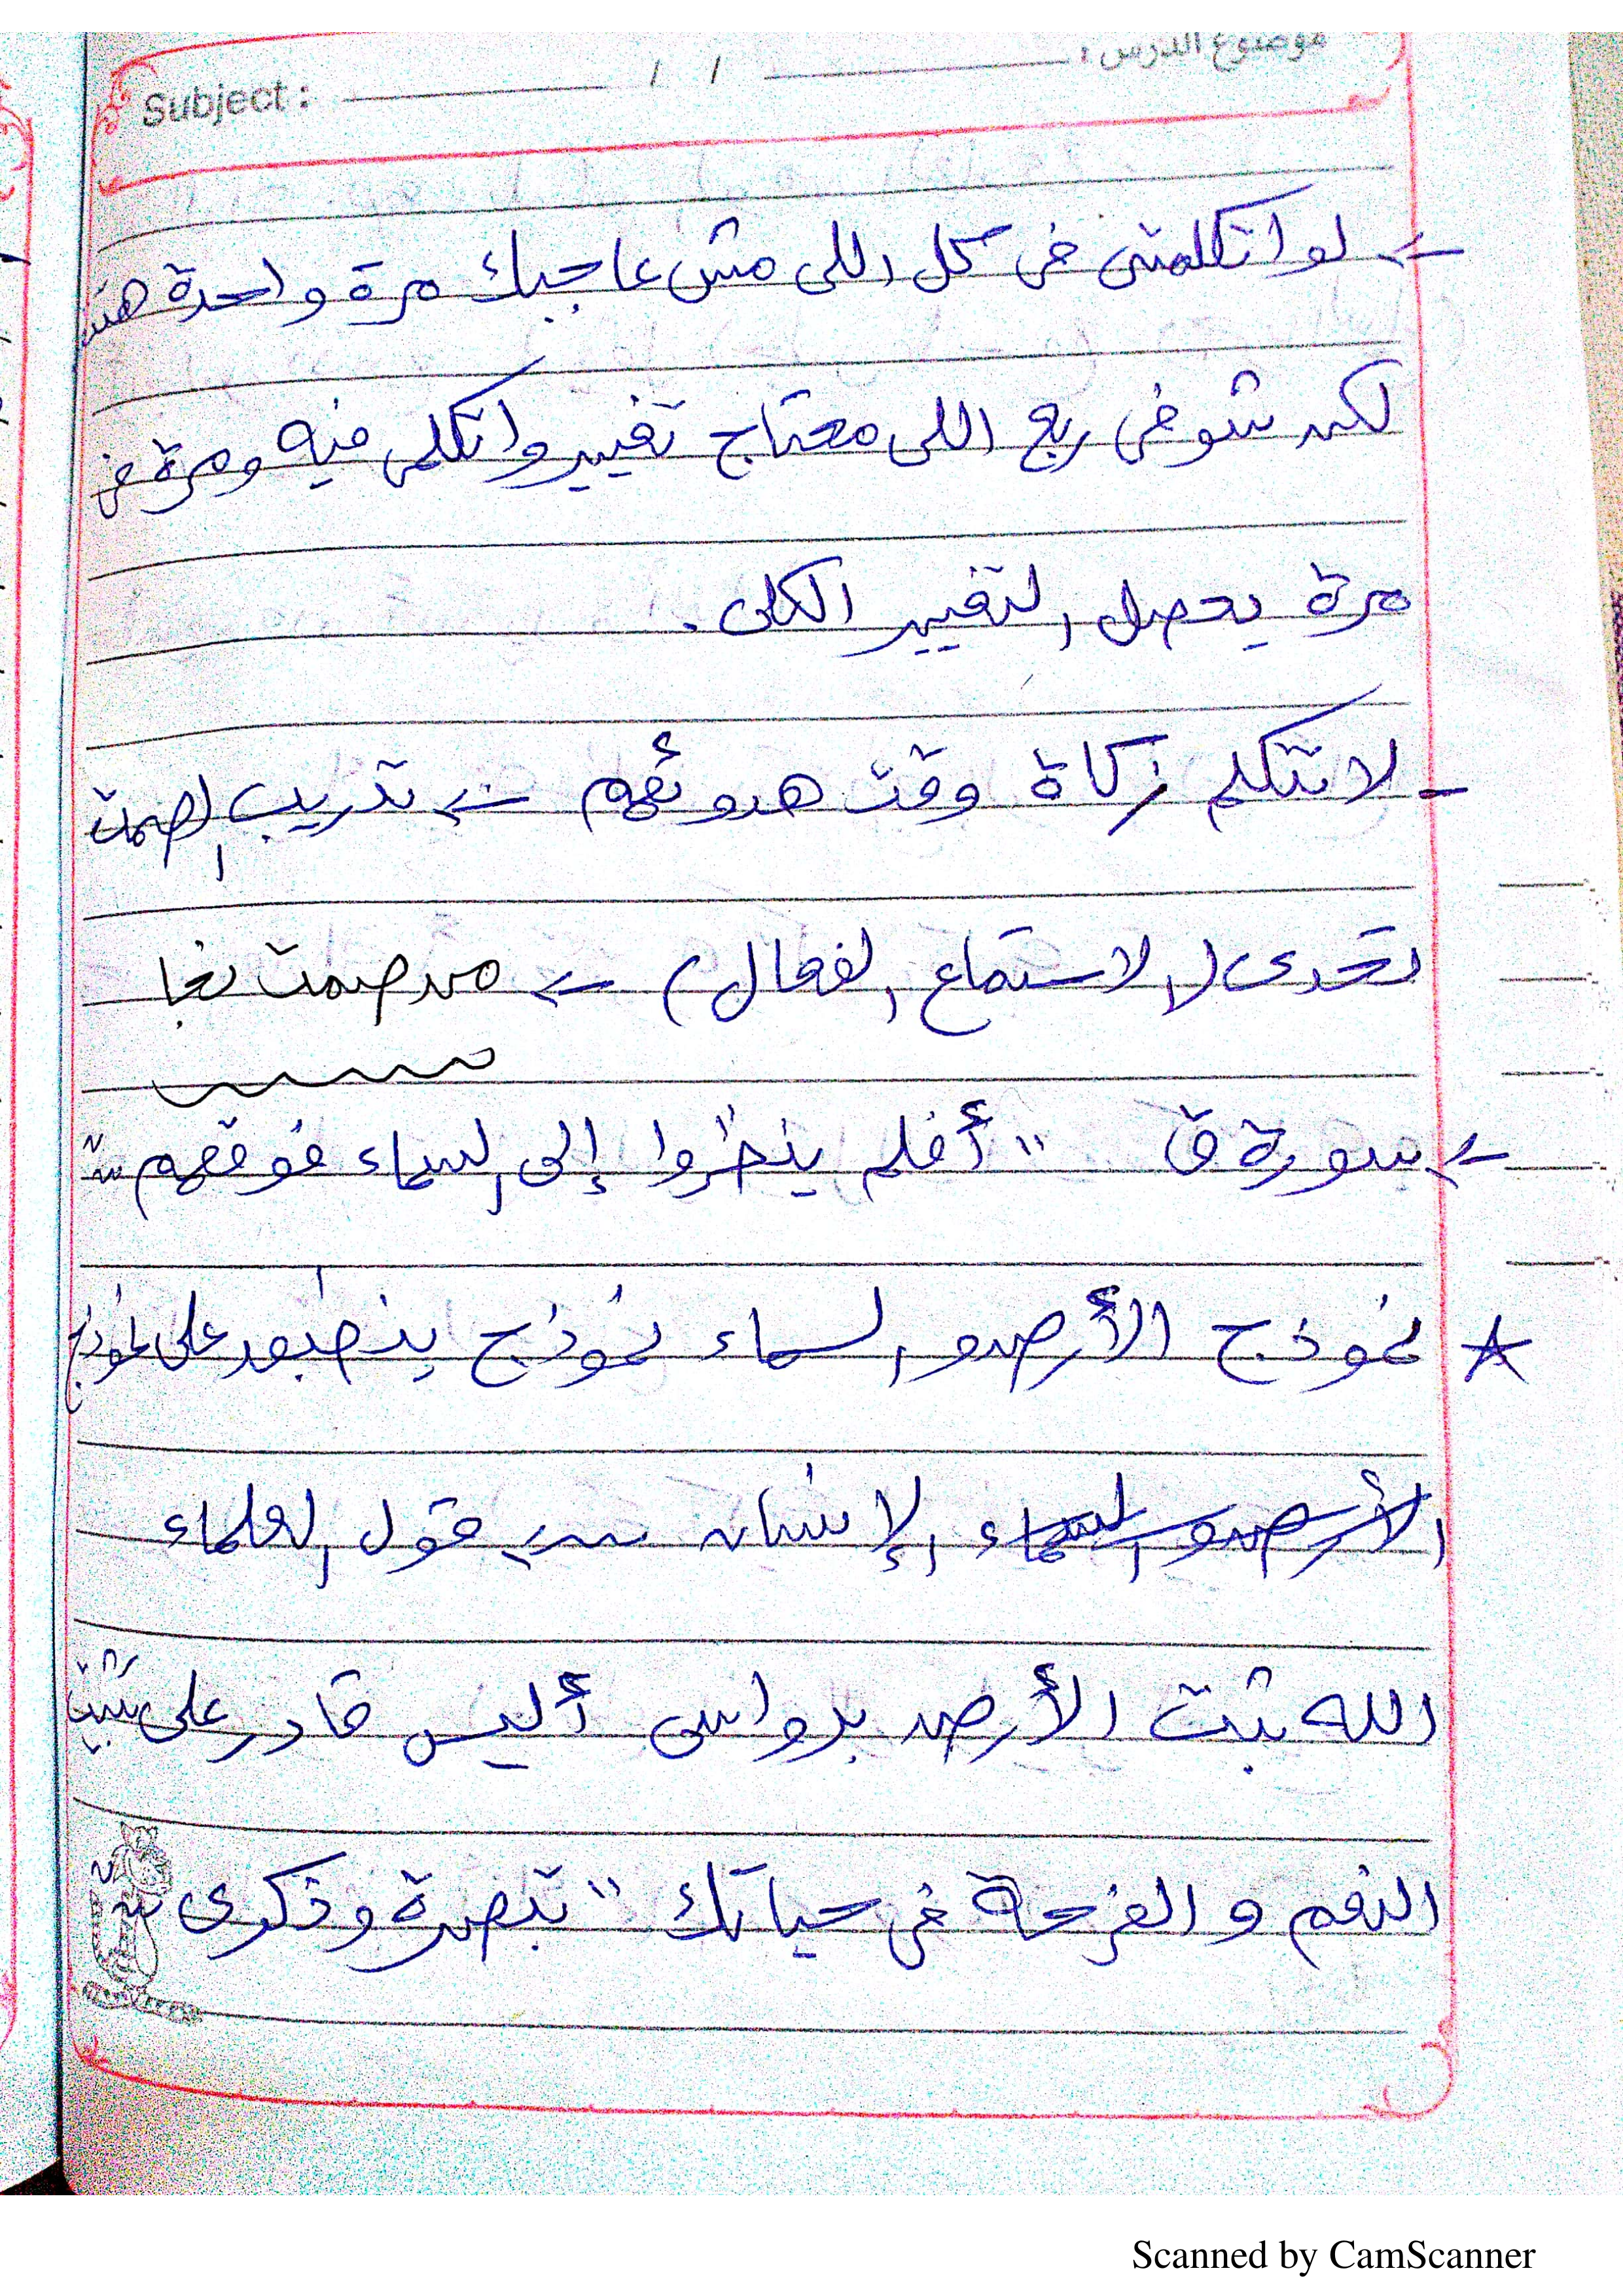 موضوع الدرس : / / Subject :
← لو اتكلمتى فى كل اللى مش عاجبك مرة واحدة
لكن شوفى ربع اللى محتاج تغيير واتكلمى فيه ومرة فى
مرة يحصل التغيير الكلى .
- لا تتكلم زكاة وقت هدوئهم ← تدريب الصمت
تحدى ( الاستماع الفعال ) ← من صمت نجا
← سورة ق " أفلم ينظروا إلى السماء فوقهم "
☆ نموذج الأرض والسماء نموذج ينطبق على نموذج
الإنسان ← قول العلماء
الله ثبت الأرض برواسى أليس قادر على تثبيت
النعم و الفرحة فى حياتك " تبصرة وذكرى "
Scanned by CamScanner